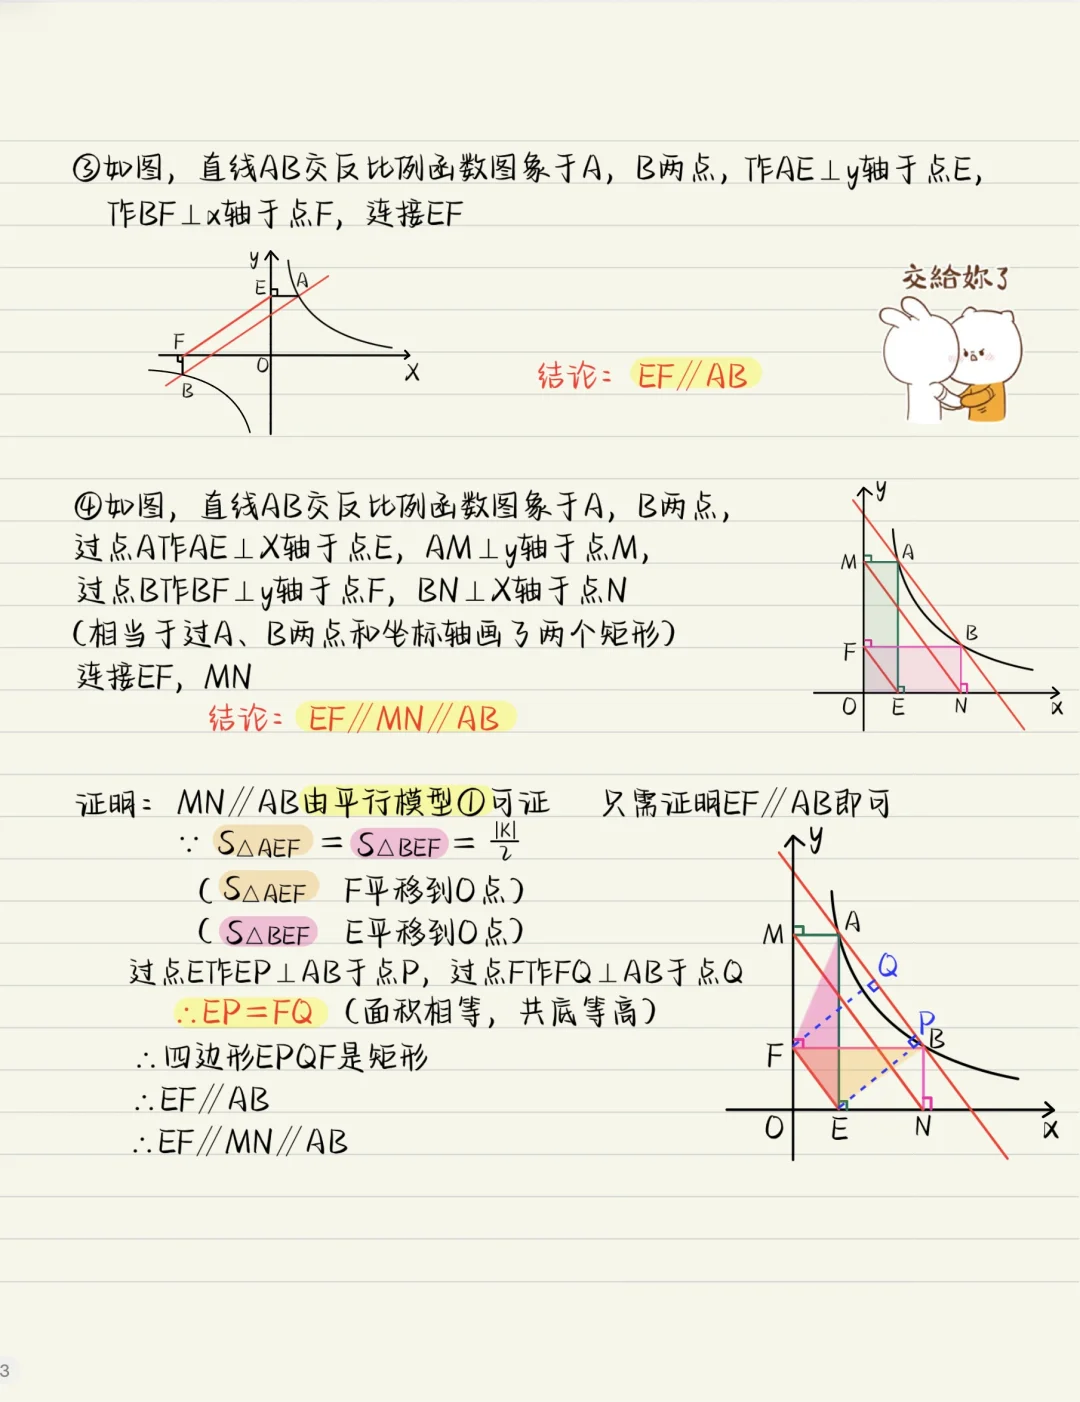 ③如图，直线AB交反比例函数图象于A，B两点，作AE⊥y轴于点E，
作BF⊥x轴于点F，连接EF
y
E
A
F
O
X
B
交給妳了
结论：EF∥AB
④如图，直线AB交反比例函数图象于A，B两点，
过点A作AE⊥X轴于点E，AM⊥y轴于点M，
过点B作BF⊥y轴于点F，BN⊥X轴于点N
（相当于过A、B两点和坐标轴画了两个矩形）
连接EF，MN
结论：EF∥MN∥AB
y
M
A
F
B
O
E
N
x
证明：MN∥AB由平行模型①可证 只需证明EF∥AB即可
∵ S△AEF = S△BEF = |K|/2
（S△AEF F平移到O点）
（S△BEF E平移到O点）
过点E作EP⊥AB于点P，过点F作FQ⊥AB于点Q
∴EP=FQ（面积相等，共底等高）
∴四边形EPQF是矩形
∴EF∥AB
∴EF∥MN∥AB
y
M
A
Q
P
B
F
O
E
N
x
3